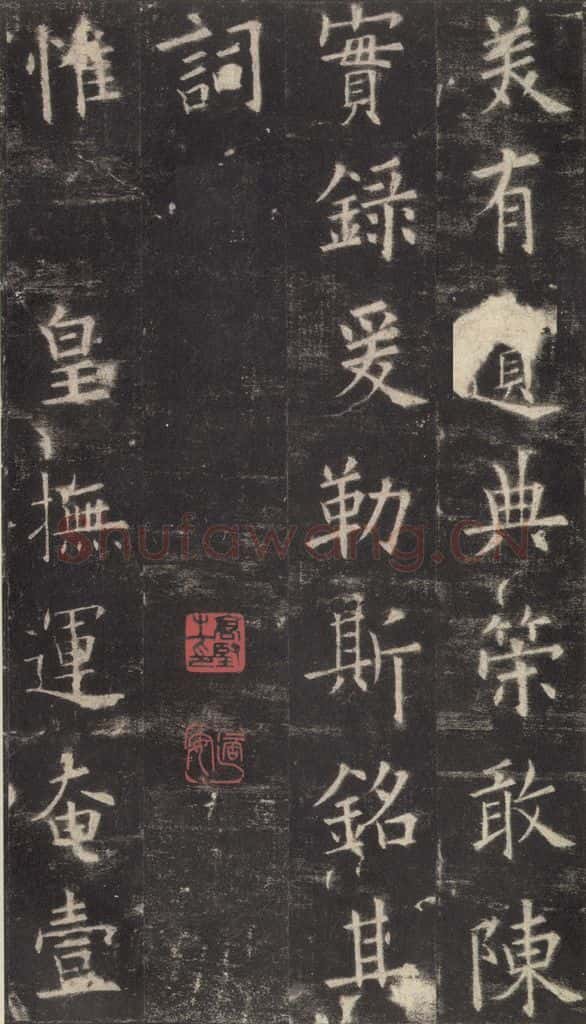 美有遺典策敢陳
實録爰勒斯銘其
詞
惟皇撫運奄壹
Shufawang.CN